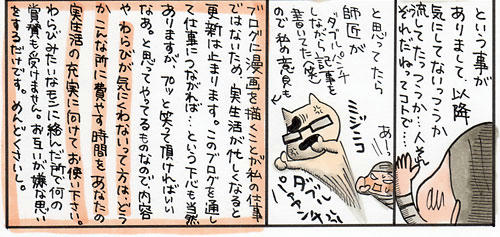 という事が
ありまして、以降
気にしてないっつうか
流してたっつうか…人
それたね？ってコトで
あ！
と思ってたら
師匠が
ダブルパンチ
ながら記事を
書いてた(笑)
ので私の意見も
ミジンコ
ダブル
パァンチ
ブログに漫画を描くことが私の仕事
ではないため、実生活が忙しくなると
更新は止まります。このブログを通し
て仕事につながれば…という下心も当然
ありますが、プッと笑って頂ければいい
なあ。と思ってやってるものなので内容
や、わらびが気にくわないって方は、どう
か、こんな所に費やす時間をあなたの
実生活の充実に向けてお使い下さい。
わらびみたいなモンに絡んだ所で何の
賞賛も受けません。お互いが嫌な思い
をするだけです。めんどくさいし。